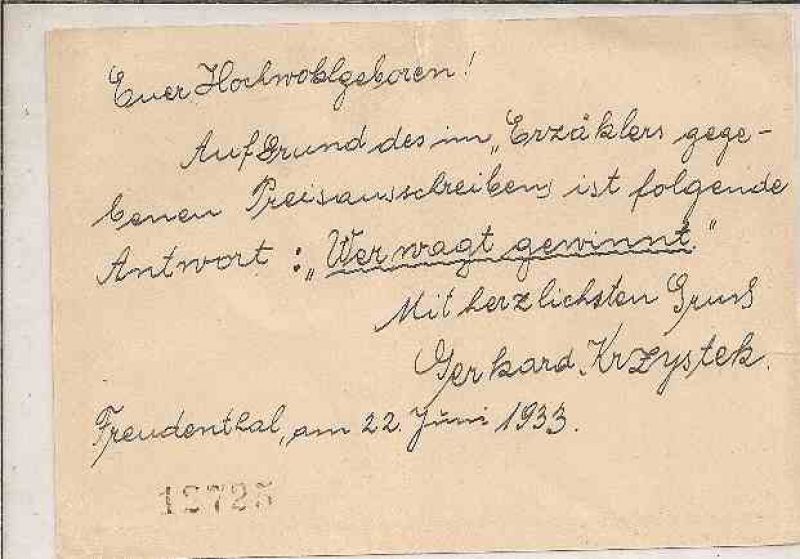 Euer Hochwohlgeboren!
Auf Grund des im „Erzählers gege-
benen Preisausschreibens ist folgende
Antwort: „Wer wagt gewinnt."
Mit herzlichsten Gruß
Gerhard Krzystek.
Freudenthal, am 22. Juni 1933.
12725